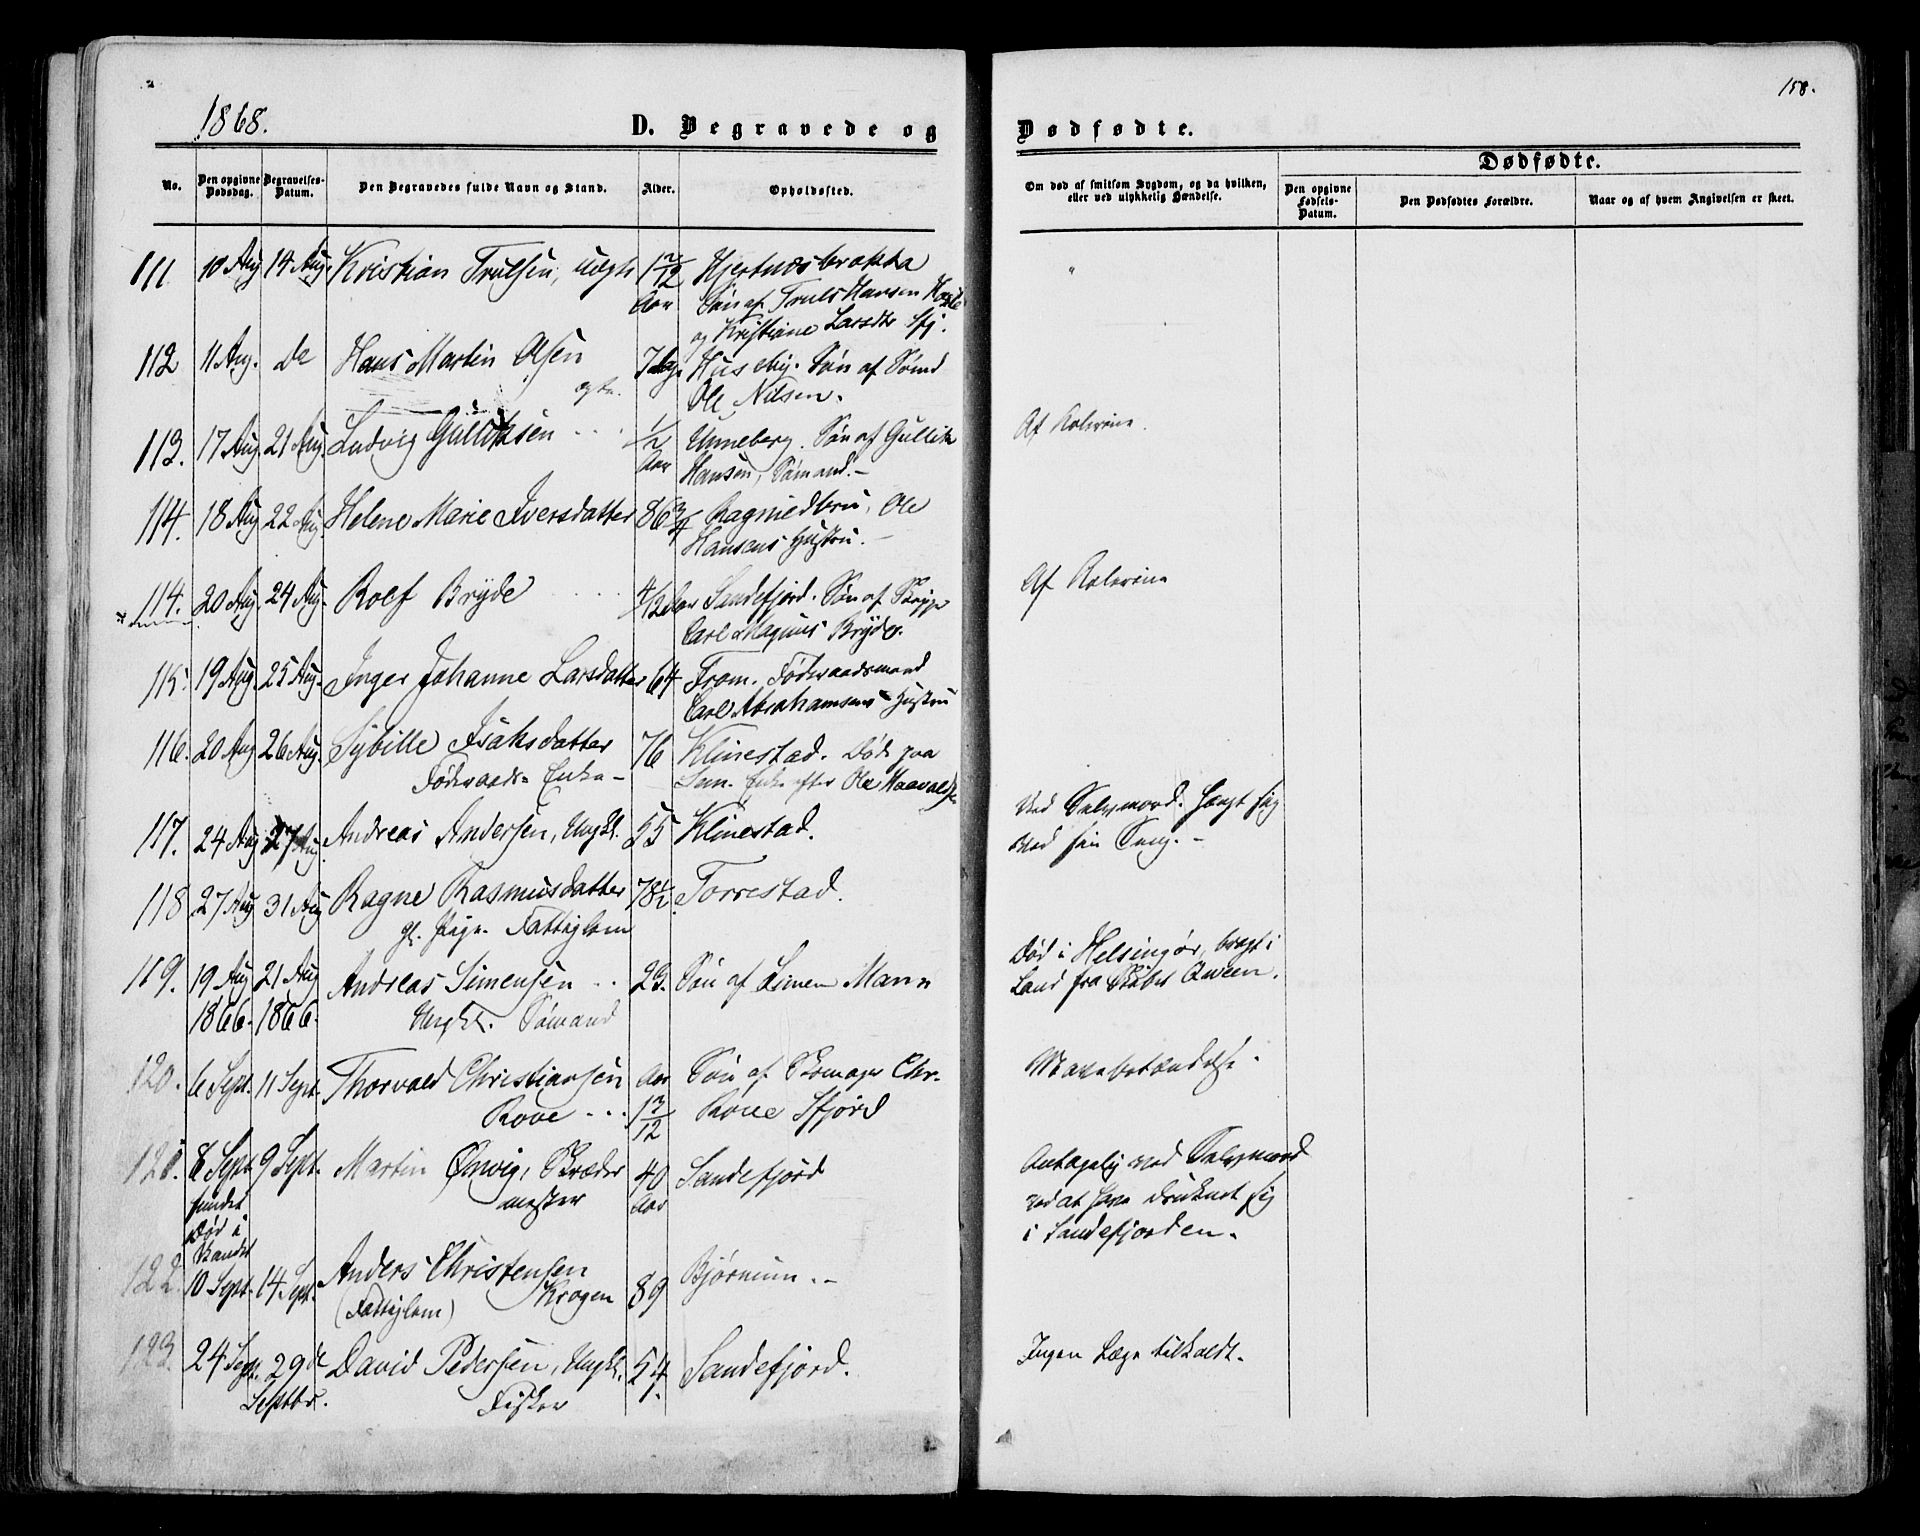 1868.
158.
D. Begravede og Dødfødte.
Dødfødte.
No.
Den opgivne Dødsdag.
Begravelses-Datum.
Den Begravedes fulde Navn og Stand.
Alder.
Opholdssted.
Om død af smitsom Sygdom, og da hvilken, eller ved ulykkelig Hændelse.
Den opgivne Fødsels-Datum.
Den Dødfødtes Forældre.
Naar og af hvem Angivelsen er skeet.
111. 10 Aug 14 Aug. Kristian Trulsen, uægte 1 7/12 Aar Hjertnæsbrække
Søn af Truls Hansen
og Kristiane Larsdtr Sfj.
112 11 Aug. do Hans Martin Olsen ægte. 7 Dage Husеby. Søn af Sømd
Ole Nilsen.
113. 17 Aug. 21 Aug. Ludvig Gulliksen 1/2 Aar Unneberg. Søn af Gullik
Hansen, Sømand.
Af Kolerine.
114. 18 Aug 22 Aug Helene Marie Iversdatter 86 3/4 Ragnedbru, Ole
Hansens Hustru.
114. 20 Aug. 24 Aug. Rolf Bryde 4/12 Aar Sandefjord. Søn af
Carl Magnus Bryde.
Af Kolerine
115. 19 Aug. 25 Aug. Inger Johanne Larsdatter 64 From. Føderaadsmand
Carl Abrahamsens Hustru
116. 20 Aug 26 Aug. Sybille Isaksdatter 76 Klinestad. Død paa
Føderaads Enke Sem. Enke efter Ole
117. 24 Aug 27 Aug. Andreas Andersen, Ungkl. 55 Klinestad.
Ved Selvmord. Hængt sig
ved sin Seng.
118 27 Aug 31 Aug Ragne Rasmusdatter 78 1/2 Torrestad.
gl. Pige. Fattiglem
119. 19 Aug 21 Aug Andreas Simensen 23. Søn af Simen Mann
1866. 1866. Ungkl. Sømand
Død i Helsingør, bragt i
Land fra Skibet Qveen.
120. 6 Sept. 11 Sept. Thorvald Christiansen Aar Søn af Skomager Chr.
Rove 1 7/12 Rove Sfjord
Mavebetændelse.
121. 8 Sept 9 Sept. Martin Ørnvig, Skræder 40 Sandefjord
fundet mester Aar
død i
Vandet
Antagelig ved Selvmord
ved at have druknet sig
i Sandefjorden.
122. 10 Sept. 14 Sept. Anders Christensen 89 Bjørnum.
(Fattiglem) Krogen
123. 24 Sept. 29de David Pedersen, Ungkl. 54 Sandefjord.
Septbr. Fisker
Ingen Læge tilkaldt.